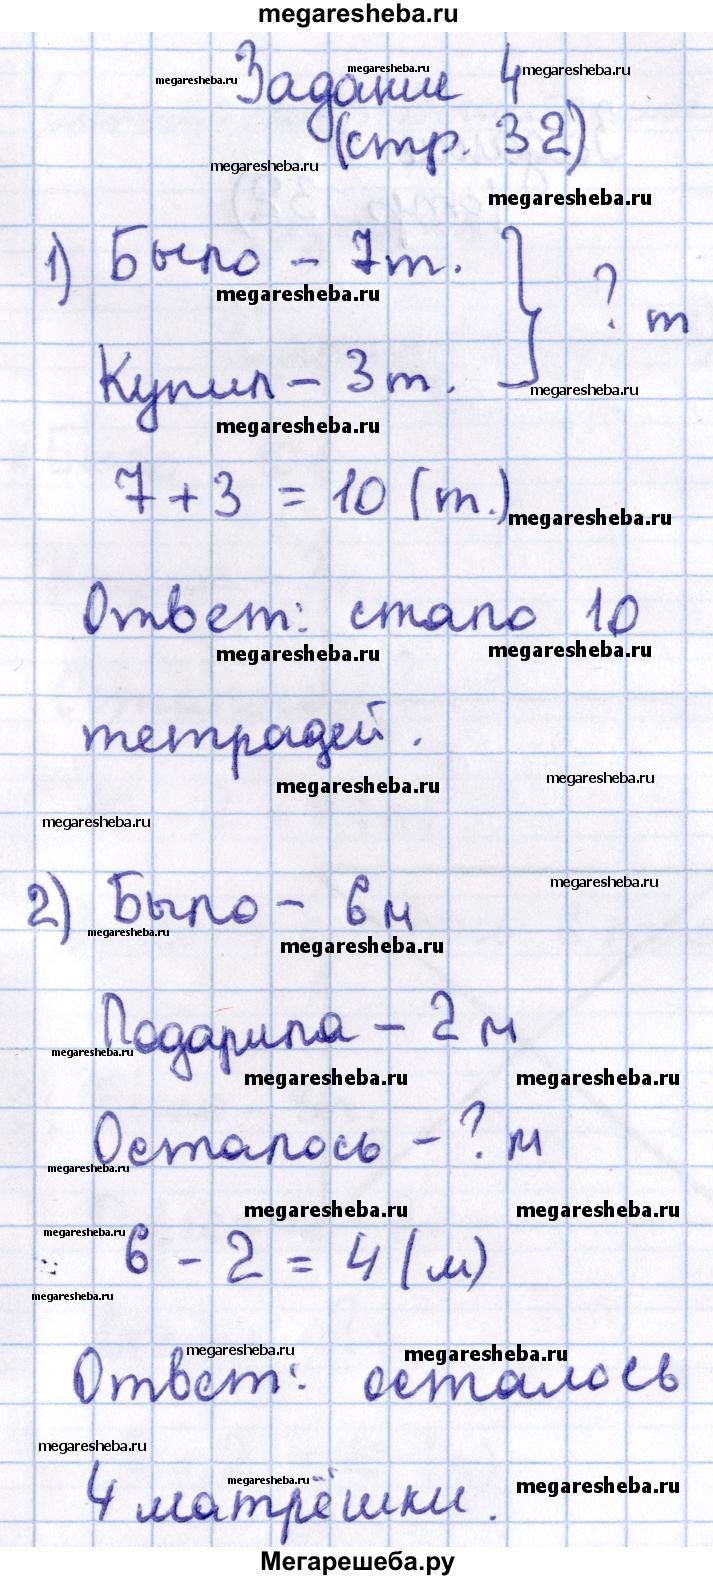 megaresheba.ru
Задание 4
megaresheba.ru megaresheba.ru megaresheba.ru
(стр. 32)
megaresheba.ru megaresheba.ru
1) Было – 7т. } ? т
megaresheba.ru
Купил – 3т.
megaresheba.ru
megaresheba.ru
7 + 3 = 10 (т.)
megaresheba.ru
Ответ: стало 10
megaresheba.ru megaresheba.ru
тетрадей.
megaresheba.ru megaresheba.ru
megaresheba.ru
megaresheba.ru
2) Было – 6 м
megaresheba.ru
megaresheba.ru
Подарила – 2 м
megaresheba.ru
megaresheba.ru megaresheba.ru
Осталось – ? м
megaresheba.ru
megaresheba.ru megaresheba.ru
megaresheba.ru
6 – 2 = 4 (м)
megaresheba.ru
megaresheba.ru megaresheba.ru
Ответ: осталось
megaresheba.ru
megaresheba.ru megaresheba.ru
4 матрёшки.
Мегарешеба.ру